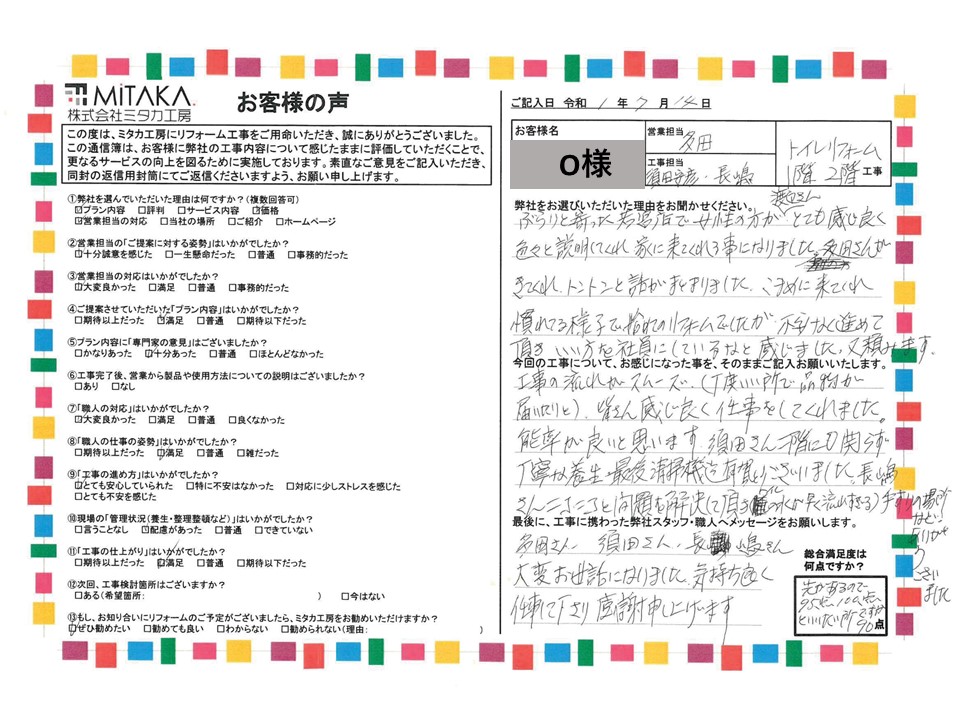 MiTAKA.
株式会社ミタカ工房
お客様の声
この度は、ミタカ工房にリフォーム工事をご用命いただき、誠にありがとうございました。
この通信簿は、お客様に弊社の工事内容について感じたままに評価していただくことで、
更なるサービスの向上を図るために実施しております。素直なご意見をご記入いただき、
同封の返信用封筒にてご返信くださいますよう、お願い申し上げます。
①弊社を選んでいただいた理由は何ですか？（複数回答可）
☑プラン内容 □評判 □サービス内容 ☑価格
☑営業担当の対応 □当社の場所 □ご紹介 □ホームページ
②営業担当の「ご提案に対する姿勢」はいかがでしたか？
☑十分誠意を感じた □一生懸命だった □普通 □事務的だった
③営業担当の対応はいかがでしたか？
☑大変良かった □満足 □普通 □事務的だった
④ご提案させていただいた「プラン内容」はいかがでしたか？
□期待以上だった ☑満足 □普通 □期待以下だった
⑤プラン内容に「専門家の意見」はございましたか？
□かなりあった ☑十分あった □普通 □ほとんどなかった
⑥工事完了後、営業から製品や使用方法についての説明はございましたか？
□あり □なし
⑦「職人の対応」はいかがでしたか？
☑大変良かった □満足 □普通 □良くなかった
⑧「職人の仕事の姿勢」はいかがでしたか？
□期待以上だった ☑満足 □普通 □雑だった
⑨「工事の進め方」はいかがでしたか？
☑とても安心していられた □特に不安はなかった □対応に少しストレスを感じた
□とても不安を感じた
⑩現場の「管理状況（養生・整理整頓など）」はいかがでしたか？
□言うことなし ☑配慮があった □普通 □できていない
⑪「工事の仕上がり」はいかがでしたか？
□期待以上だった ☑満足 □普通 □期待以下だった
⑫次回、工事検討箇所はございますか？
□ある（希望箇所: ） □今はない
⑬もし、お知り合いにリフォームのご予定がございましたら、ミタカ工房をお勧めいただけますか？
☑ぜひ勧めたい □勧めても良い □わからない □勧められない（理由: ）
ご記入日 令和 1 年 7 月 日
お客様名
O様
営業担当
多田
工事担当
須田 ・長嶋
トイレリフォーム
1階 2階 工事
弊社をお選びいただいた理由をお聞かせください。
渡辺さん
ぶらりと寄った 店で女性の方が とても感じ良く
色々と説明してくれ 家に来てくれる事になりました。多田さんが
きてくれ、トントンと話がまとまりました。こまめに来てくれ
慣れてる様子で 初めてのリフォームでしたが 不安なく進めて
頂き いい方を社員にしているなと感じました。又頼みます。
今回の工事について、お感じになった事を、そのままご記入お願いいたします。
工事の流れがスムーズ、（丁度いい所で品物が
届いたりと）、皆さん感じ良く仕事をしてくれました。
能率が良いと思います。須田さん 階に関らず
丁寧な養生・最後清掃機迄有難うございました。長嶋
さんニコニコと問題を解決して頂き（トイレの水が 流 すぎる）手すりの場所
など ありがとうございました
最後に、工事に携わった弊社スタッフ・職人へメッセージをお願いします。
多田さん 須田さん・長嶋さん
大変お世話になりました。気持ち良く
仕事して下さり 感謝申し上げます
総合満足度は
何点ですか？
先があるので
95点、100点、
といいたい所ですが
90点